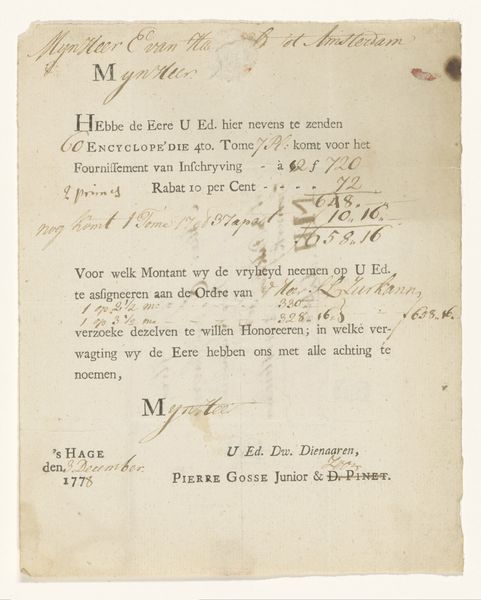 MynHeer E van H B tot Amsterdam
MynHeer
HEbbe de Eere U Ed. hier nevens te zenden
60 ENCYCLOPE'DIE 4to. Tome 7 Pl: komt voor het
Fournissement van Inschryving - à 12 f 720
2 primes Rabat 10 per Cent - - - - 72
648 -
nog komt 1 Tome 17 10 - 16 -
658 - 16
Voor welk Montant wy de vryheyd neemen op U Ed.
te assigneeren aan de Ordre van d'Heer
1 op 2½ m: 330 -
1 op 3½ m: 328 - 16 f 658 - 16 -
verzoeke dezelven te willen Honoreeren; in welke ver-
wagting wy de Eere hebben ons met alle achting te
noemen,
MynHeer
's HAGE U Ed. Dw. Dienaaren,
den December Zoon
1778 PIERRE GOSSE Junior & D. PINET.